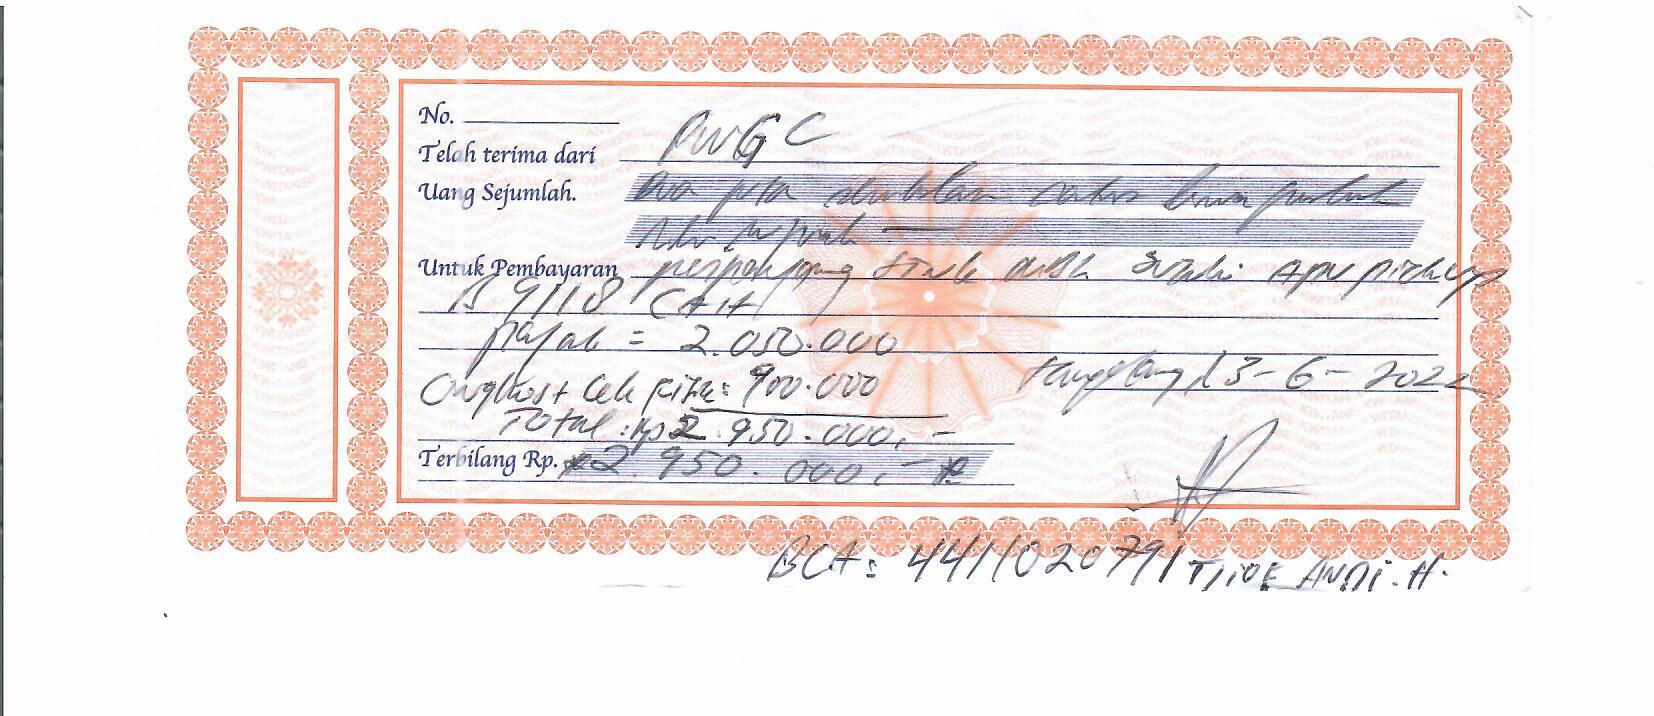 No.
Telah terima dari PWGC
Uang Sejumlah. Dua juta sembilan ratus lima puluh
ribu rupiah
Untuk Pembayaran perpanjang STNK mobil Suzuki APV pick up
B 9118 CAH
pajak = 2.050.000
Ongkos + Cek Fisik: 900.000 Tangerang 13-6-2022
Total: Rp 2.950.000,-
Terbilang Rp. 2.950.000,-
BCA: 4411020791 TJIOE ANDI. H.